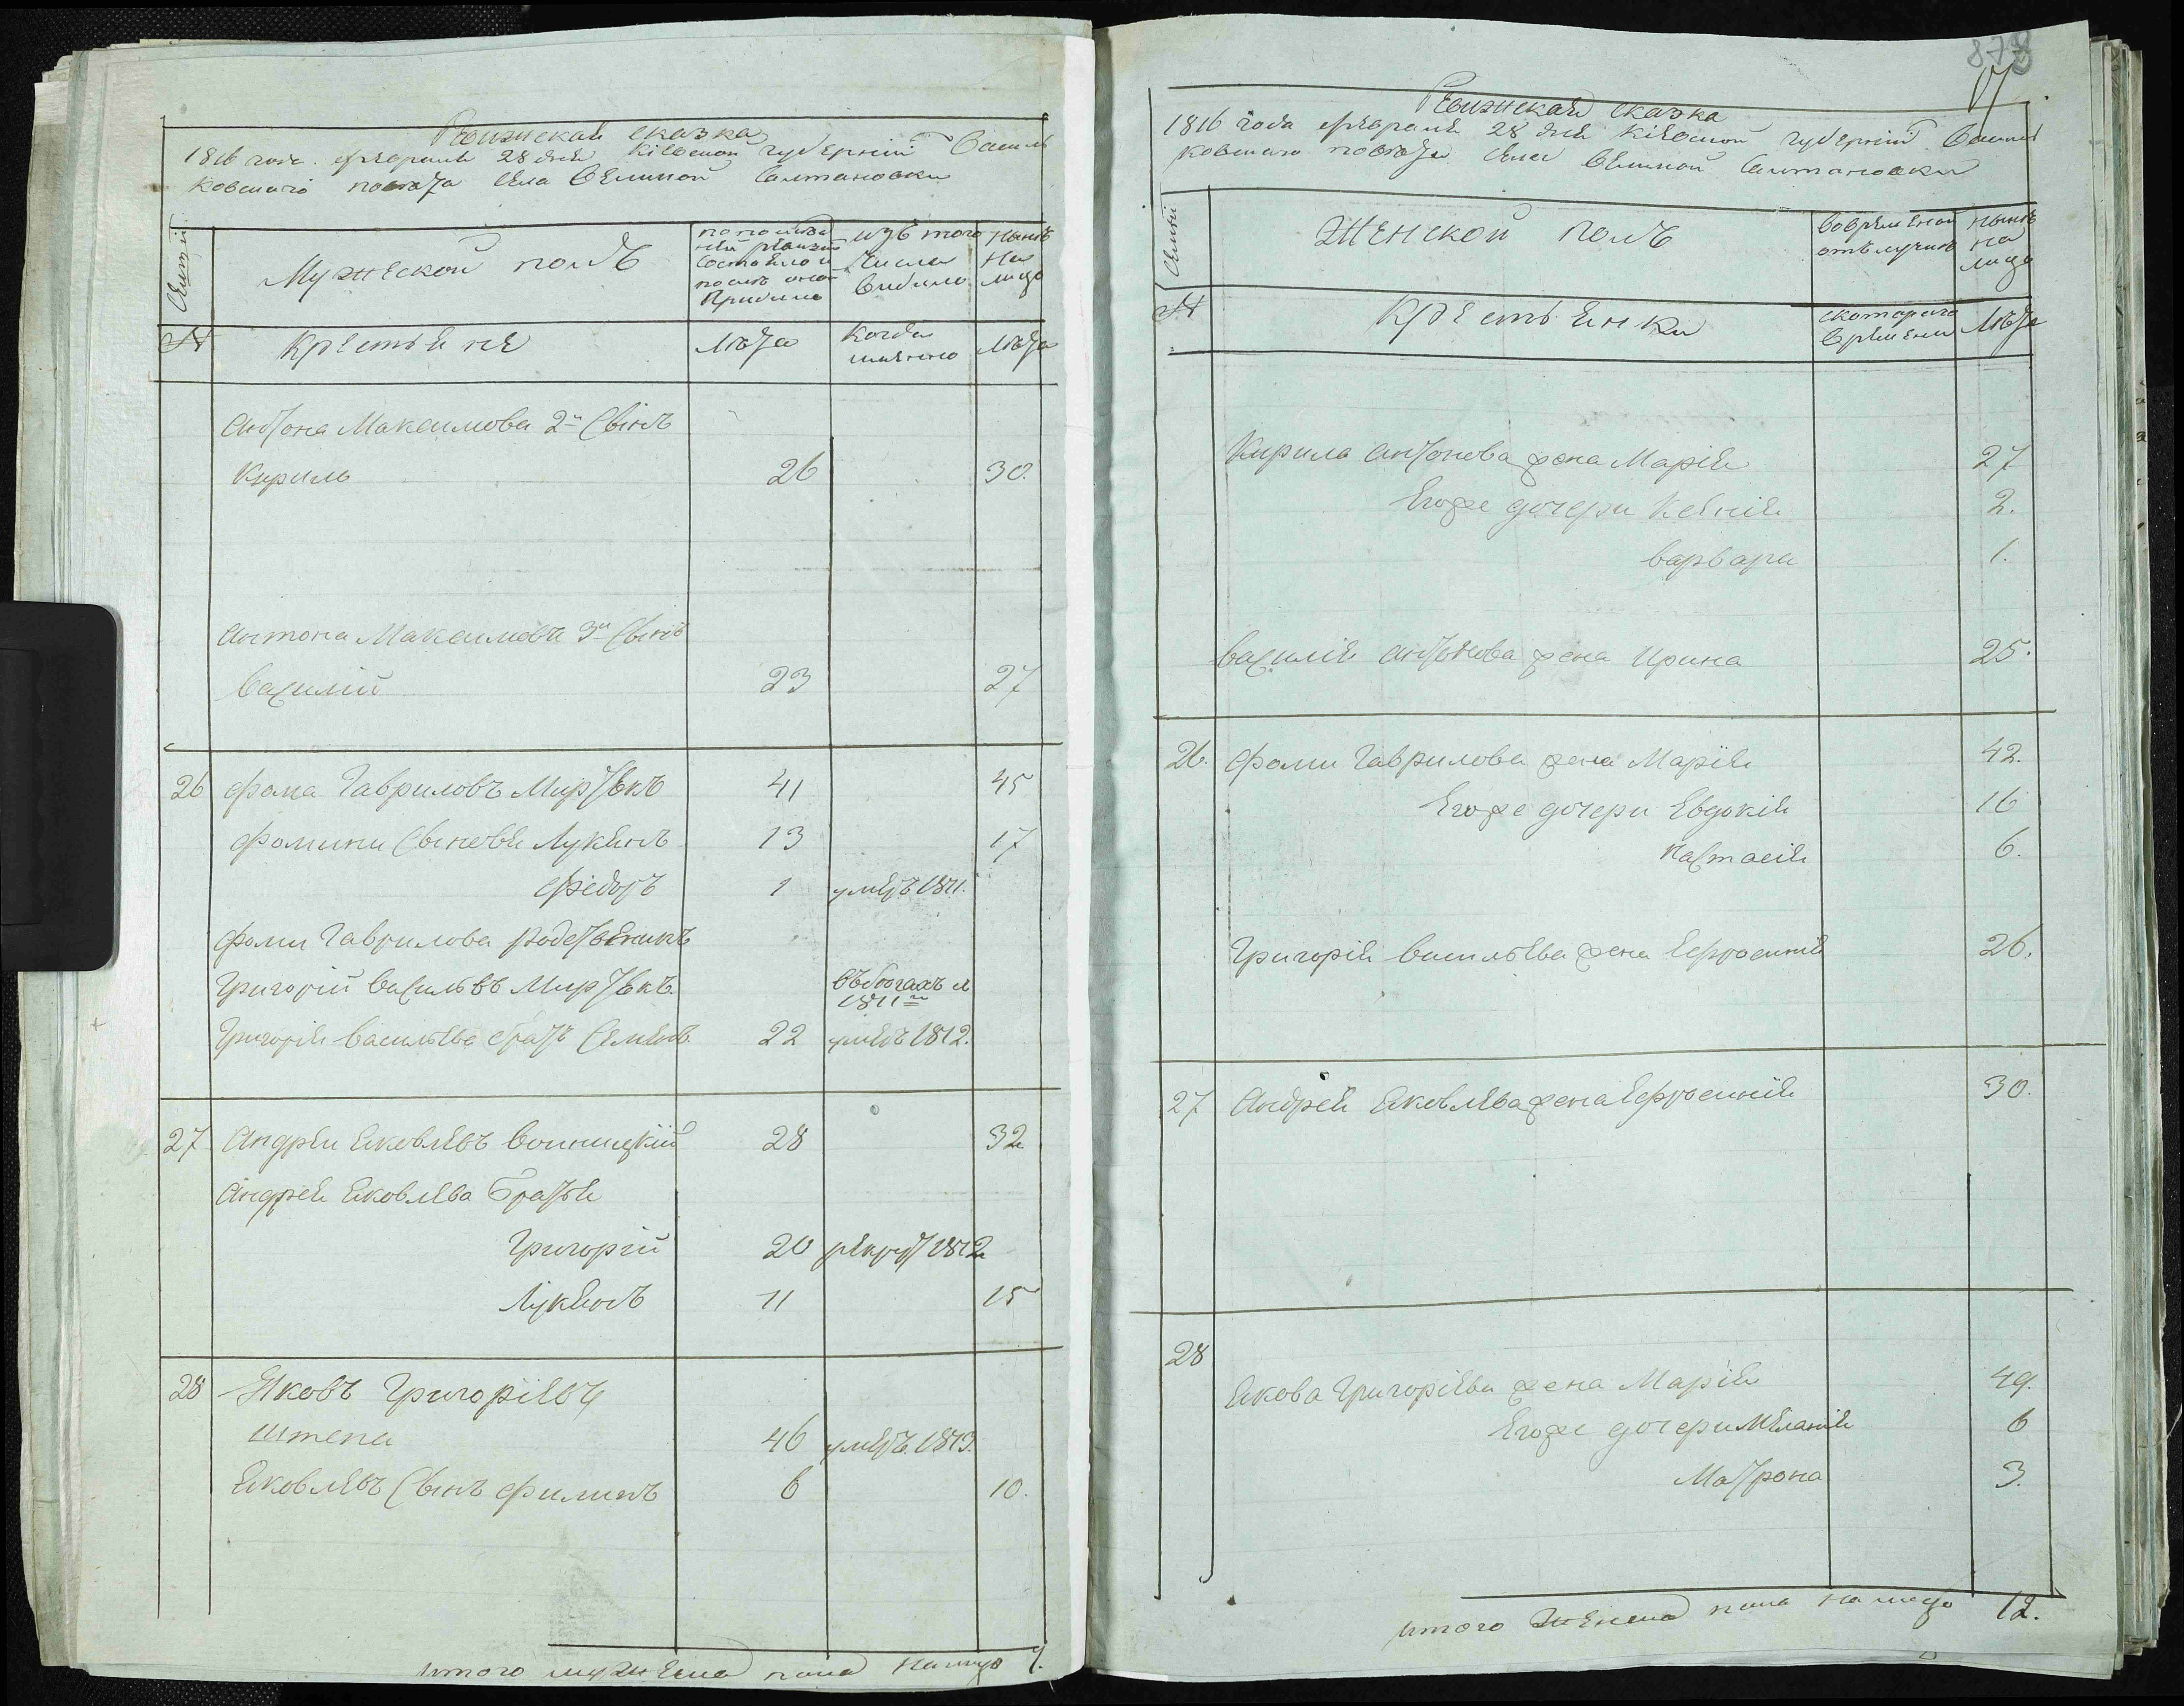 Ревижская сказка
1816 года февраля 28 дня Кiевской губернiи Василь
ковскаго повѣта села Великой Салтановки
Семьи
Мужеской полъ
по послѣд
ней ревизiи
состояло и
послѣ оной
прибыло
изъ того
числа
выбыло
нынѣ
на
лицо
№
Крестьяне
Лѣта
Когда
имянно
Лѣта
Антона Максимова 2й Сынъ
Кирилъ 26 30.
Антона Максимова 3й Сынъ
Василiй 23 27
26 Фома Гавриловъ Мирутѣнко 41 45
Фомини Сыновья Лукянъ 13 17
Федоръ 1 умеръ 1811.
Фоми Гаврилова родственикъ
Григорiй Васильевъ
въ бѣгахъ
1811го
Григорiя Васильева братъ Семiонъ 22 умеръ 1812.
27 Андрей Яковлевъ Войницкiй 28 32
Андрея Яковлева братья
Григорiй 20 рекрутъ 1812
Лукянъ 11 15
28 Яковъ Григорiевъ
Штепа 46 умеръ 1813.
Яковлевъ Сынъ Филипъ 6 10.
итого мужеска пола налицо 7.
878
17
Ревижская сказка
1816 года февраля 28 дня Кiевской губернiи Василь
ковскаго повѣта села Великой Салтановки
Семьи
Женской полъ
Вовременной
отълучкѣ
нынѣ
на
лицо
№
Крестьянки
скотораго
времени
Лѣта
Кирила Антонова жена Марiя 27
Егоже дочери Ксенiя 2.
Варвара 1.
Василiя Антонова жена Ирина 25.
26. Фоми Гаврилова жена Марiя 42.
Егоже дочери Евдокiя 16
Настасiя 6.
Григорiя Васильева жена Ефросинiя 26.
27 Андрея Яковлева жена Ефросинiя 30.
28
Якова Григорiева жена Марiя 49.
Егоже дочери Меланiя 6
Матрона 3.
итого Женска пола налицо 12.